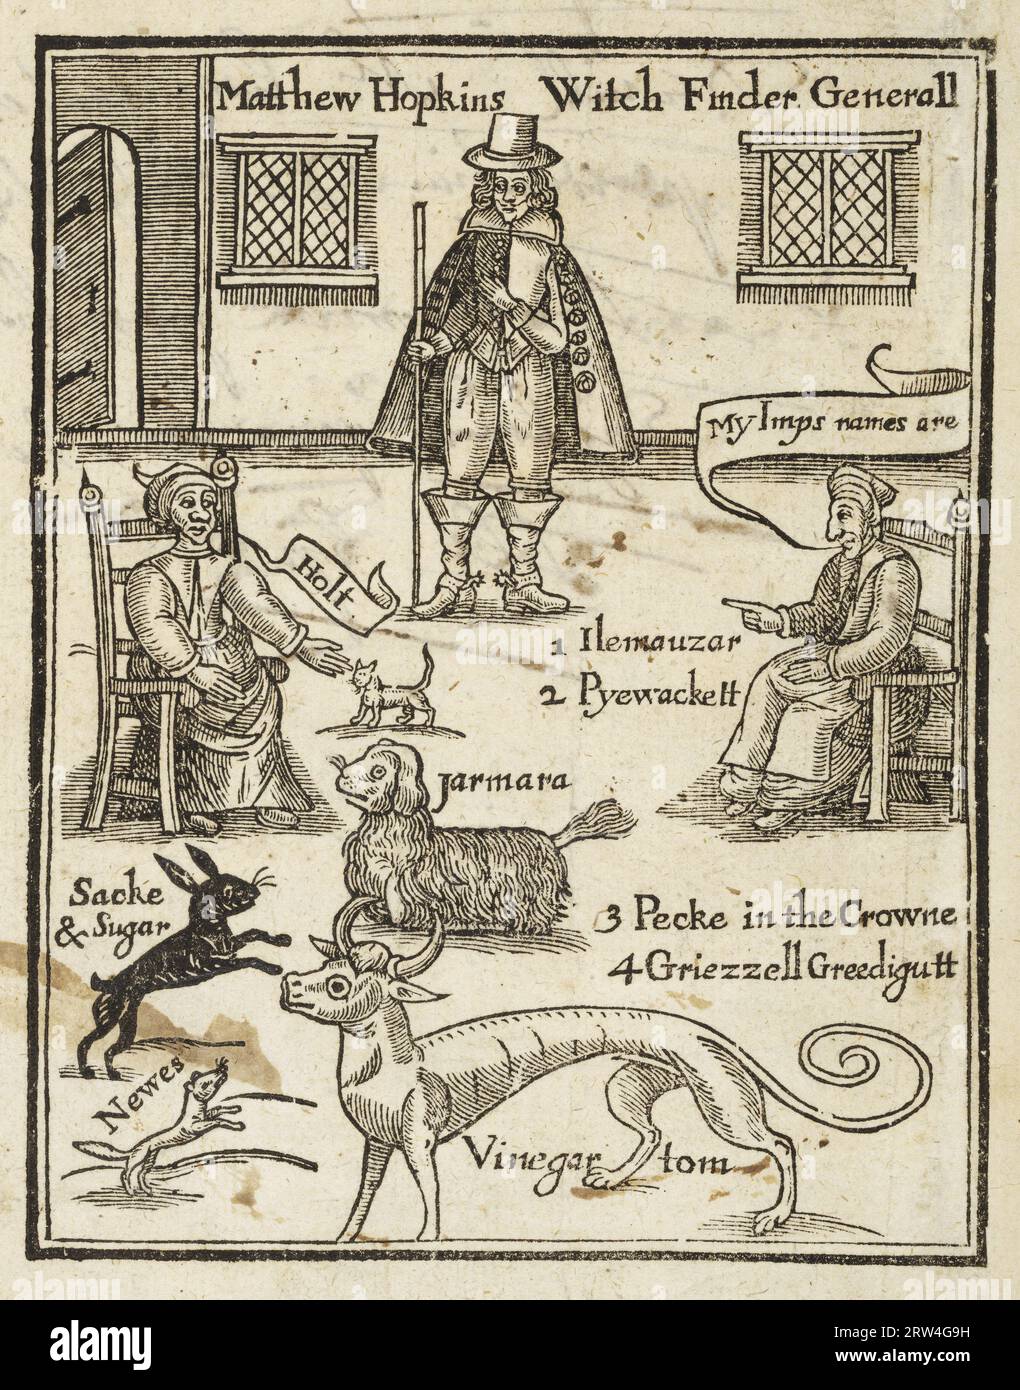 Matthew Hopkins Witch Finder Generall
My Imps names are
Holt
1 Ilemauzar
2 Pyewackett
Jarmara
Sacke
& Sugar
3 Pecke in the Crowne
4 Griezzell Greedigutt
Newes
Vinegar tom
alamy
Image ID: 2RW4G9H
www.alamy.com